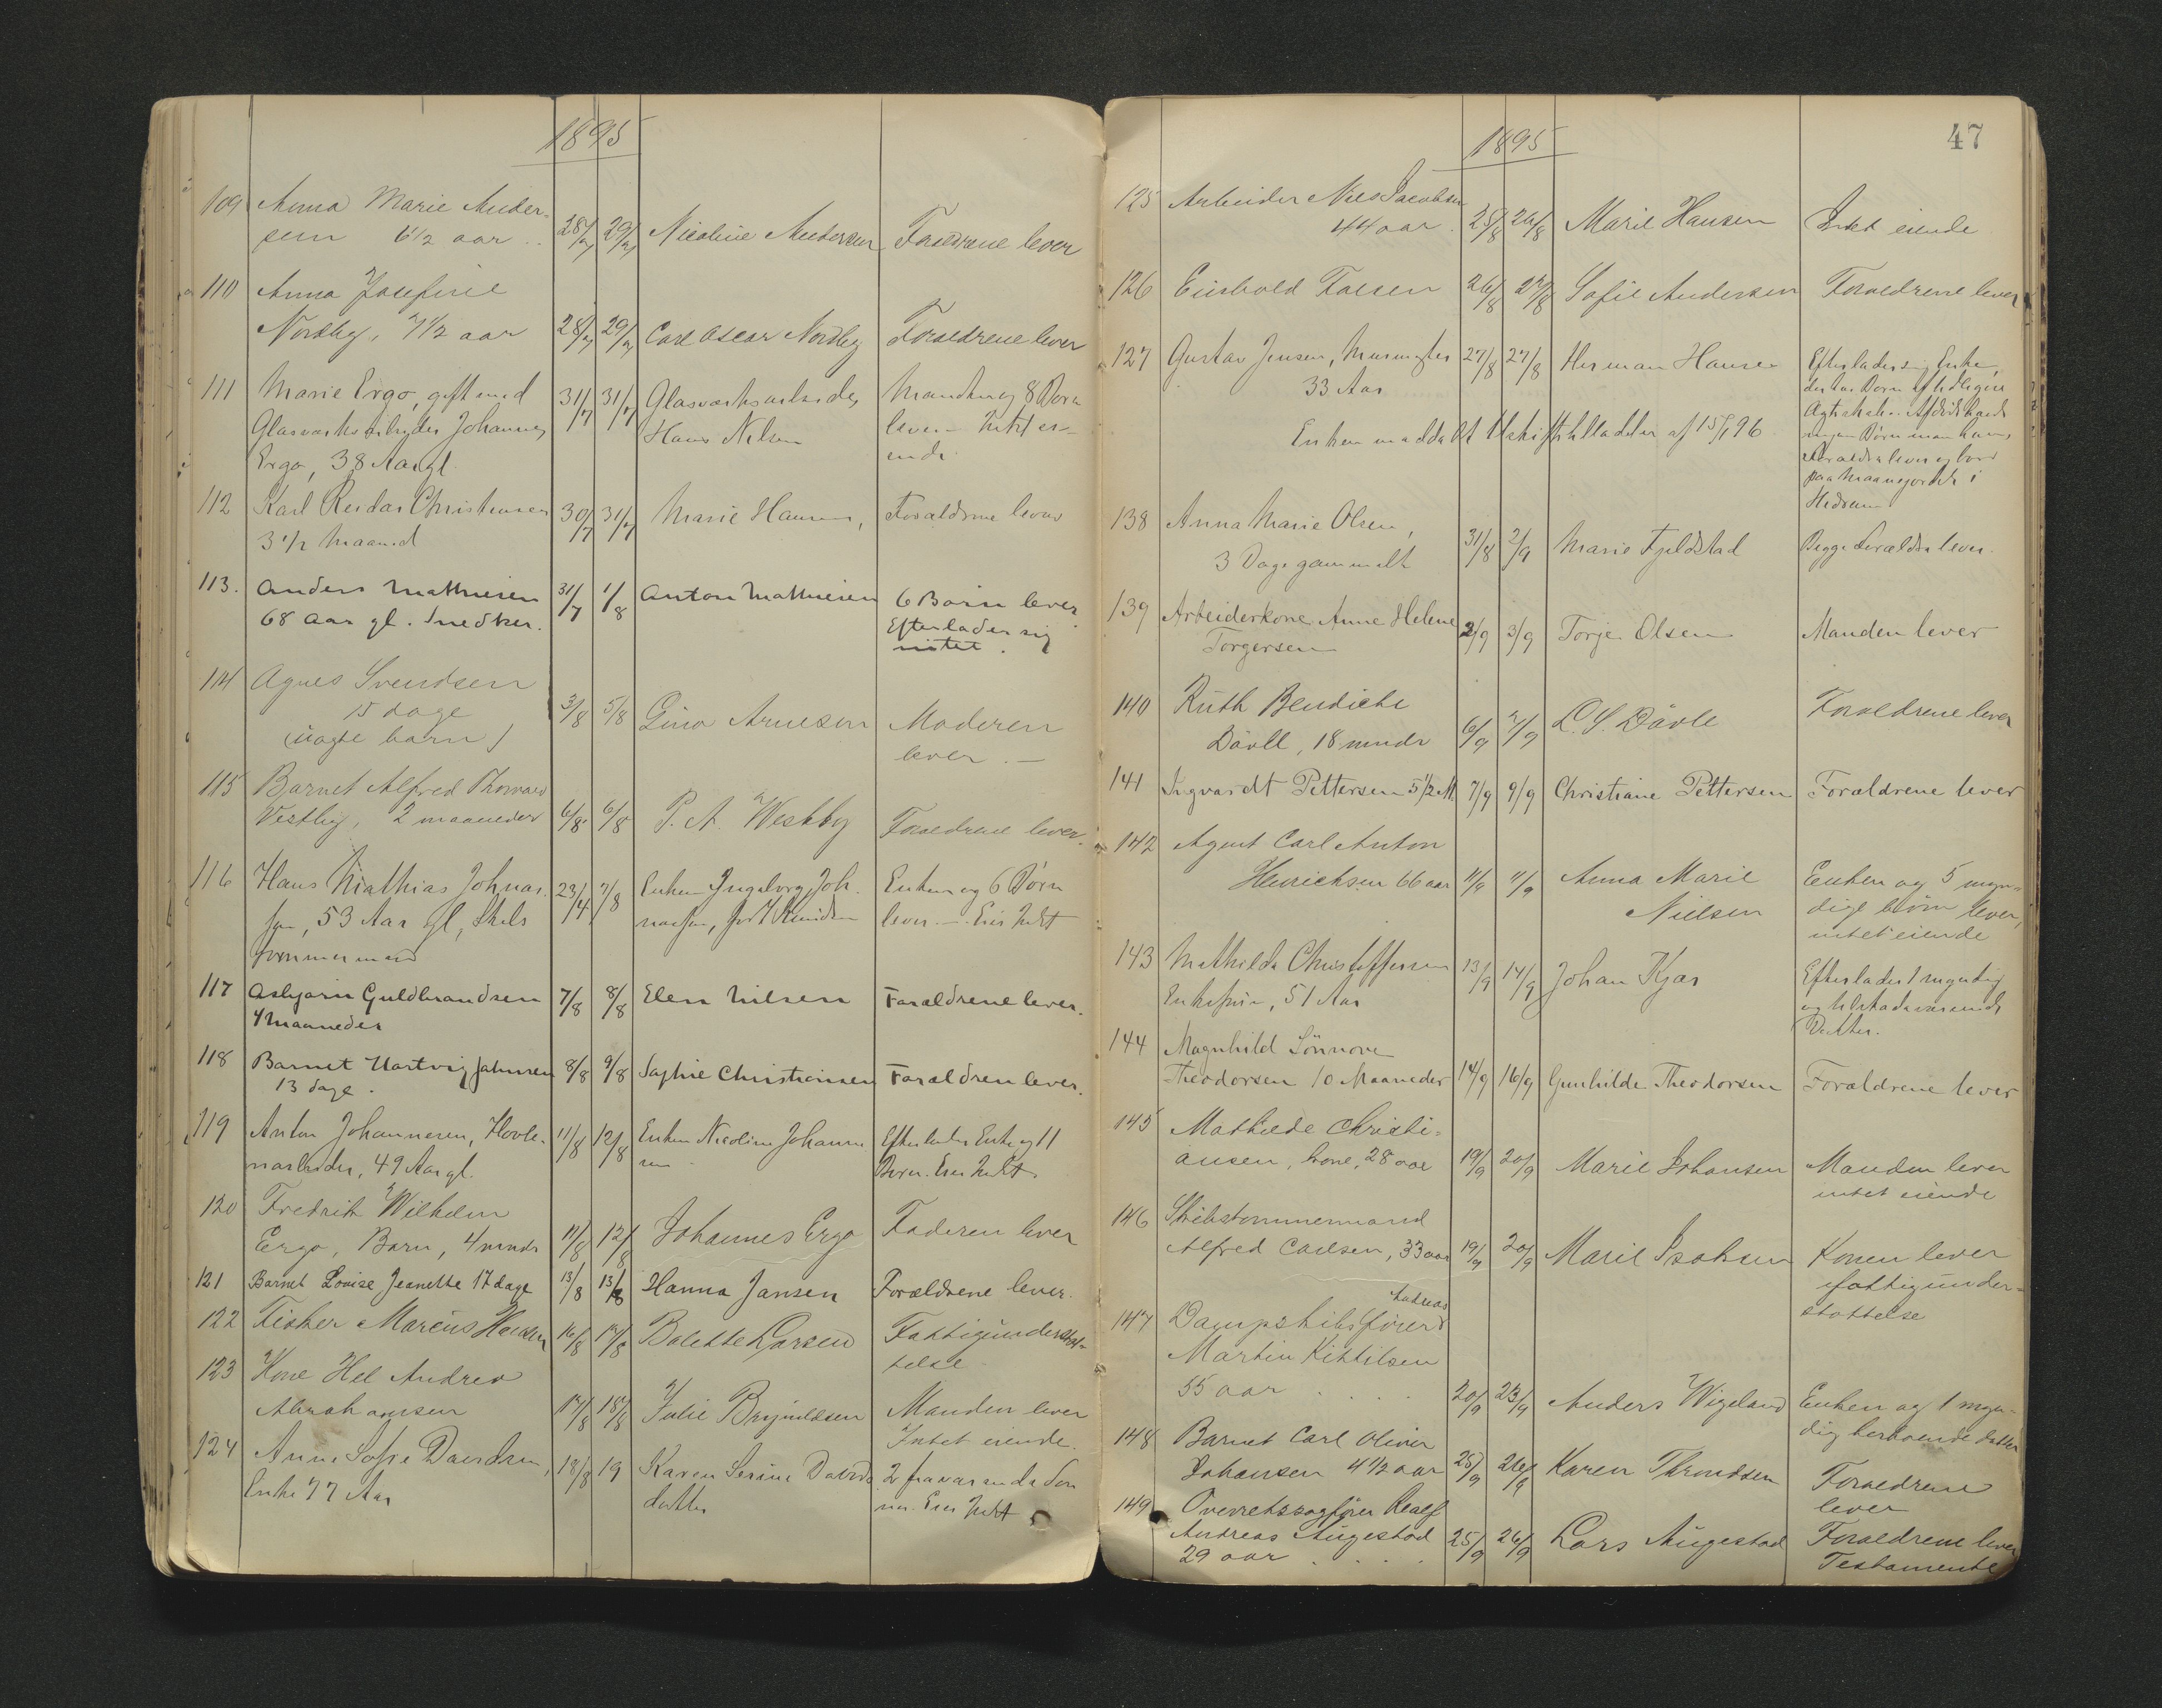 1895
109 Anna Marie Ander-
sen 6 1/2 aar .. 28/7 29/7 Nicoline Andersen Forældrene lever
110 Anna Josefine
Nordby, 7 1/2 aar 28/7 29/7 Carl Oscar Nordby Forældrene lever
111 Marie Ergo, gift med 31/7 31/7 Glasværksarbeider Manden og 8 Børn
Glasværksarbeider Johannes Hans Nilsen lever. – Intet ei-
Ergo, 38 Aar gl. ende
112 Karl Reidar Christensen 30/7 31/7 Marie Hansen, Forældrene lever
3 1/2 Maaned
113. Anders Mathiesen 31/7 1/8 Anton Mathiesen 6 Børn lever
68 Aar gl. Snedker. Efterlader sig
intet.
114 Agnes Svendsen
15 dage 3/8 5/8 Gina Arnesen Moderen
(uægte barn) lever. –
115 Barnet Alfred Thorvald
Vestby, 2 maaneder 6/8 6/8 P. A. Westby Forældrene lever.
116 Hans Mathias Johna- 23/4 7/8 Enken Ingeborg Joh- Enken og 6 Børn
sen, 53 Aar gl, Skibs nasen, født Knudsen lever. – Eier Intet
tømmermand
117 Asbjørn Guldbrandsen 7/8 8/8 Elen Nilsen Forældrene lever.
4 Maaneder
118 Barnet Hartvig Johnsen 8/8 9/8 Sophie Christiansen Forældren lever.
13 dage.
119 Anton Johannesen, Høvle- 11/8 12/8 Enken Nicoline Johanne- Efterlader Enke og 11
riarbeider, 49 Aar gl. sen Børn. Eier Intet.
120 Fredrik Wilhelm
Ergo, Barn, 4 mndr 11/8 12/8 Johannes Ergo Faderen lever
121 Barnet Louise Jeanette 17 dage 13/8 13/8 Hanna Jansen Forældrene lever.
122 Fisker Marcus Hansen 16/8 17/8 Bolette Larsen Fattigunderstøt-
telse
123 Kone Hel Andrea
Abrahamsen 17/8 18/8 Julie Brynildsen Manden lever
Intet eiende.
124 Anne Sofie Davidsen, 18/8 19 Karen Serine Davids- 2 fraværende Søn-
Enke 77 Aar datter ner. Eier Intet
1895
47
125 Arbeider Nils Jacobsen
44 aar. 25/8 26/8 Marie Hansen Intet eiende
126 Einbold Falsen 26/8 27/8 Sofie Andersen Forældrene lever
127 Gustav Jensen, Murmester 27/8 27/8 Herman Hansen Efterlader sig Enke,
33 Aar der har Børn af tidligere
Ægteskab. Afdøde havde
Enken meddelt Uskiftetilladelse af 15/1 96 ingen Børn men hans
Forældre lever og bor
paa Maanejordet i
Hedrum
138 Anna Marie Olsen,
3 Dage gammelt 31/8 2/9 Marie Fjeldstad Begge Forældre lever.
139 Arbeiderkone Anne Helene 2/9 3/9 Torje Olsen Manden lever
Torgersen
140 Ruth Bendicte
Dåvle, 18 mndr 6/9 7/9 L. S. Dåvle Forældrene lever
141 Ingvardt Pettersen 5 1/2 M. 7/9 9/9 Christiane Pettersen Forældrene lever
142 Agent Carl Anton
Henrichsen 66 aar 11/9 11/9 Anna Marie Enken og 5 myn-
Nielsen dige børn lever,
intet eiende
143 Mathilde Christoffersen 13/9 14/9 Johan Kjær Efterlader 1 myndig
Enkefrue, 51 Aar og tilstedeværende
Datter.
144 Magnhild Sønnove
Theodorsen 10 Maaneder 14/9 16/9 Gunhilde Theodorsen Forældrene lever
145 Mathilde Christi-
ansen, kone, 28 aar 19/9 20/9 Marie Johansen Manden lever
intet eiende
146 Skibstømmermand
Alfred Carlsen, 33 aar 19/9 20/9 Marie Isaksen Konen lever
fattigunder-
støttelse
Andreas
147 Dampskibsfører
Martin Kittilsen
55 aar . . . . 20/9 23/9 Anders Wigeland Enken og 1 myn-
dig herboende datter
148 Barnet Carl Oliver
Johansen 4 1/2 aar 25/9 26/9 Karen Throndsen Forældrene
lever
149 Overretssagfører Realf
Andreas Augestad 25/9 26/9 Lars Augestad Forældrene lever
29 aar . . . . Testamente